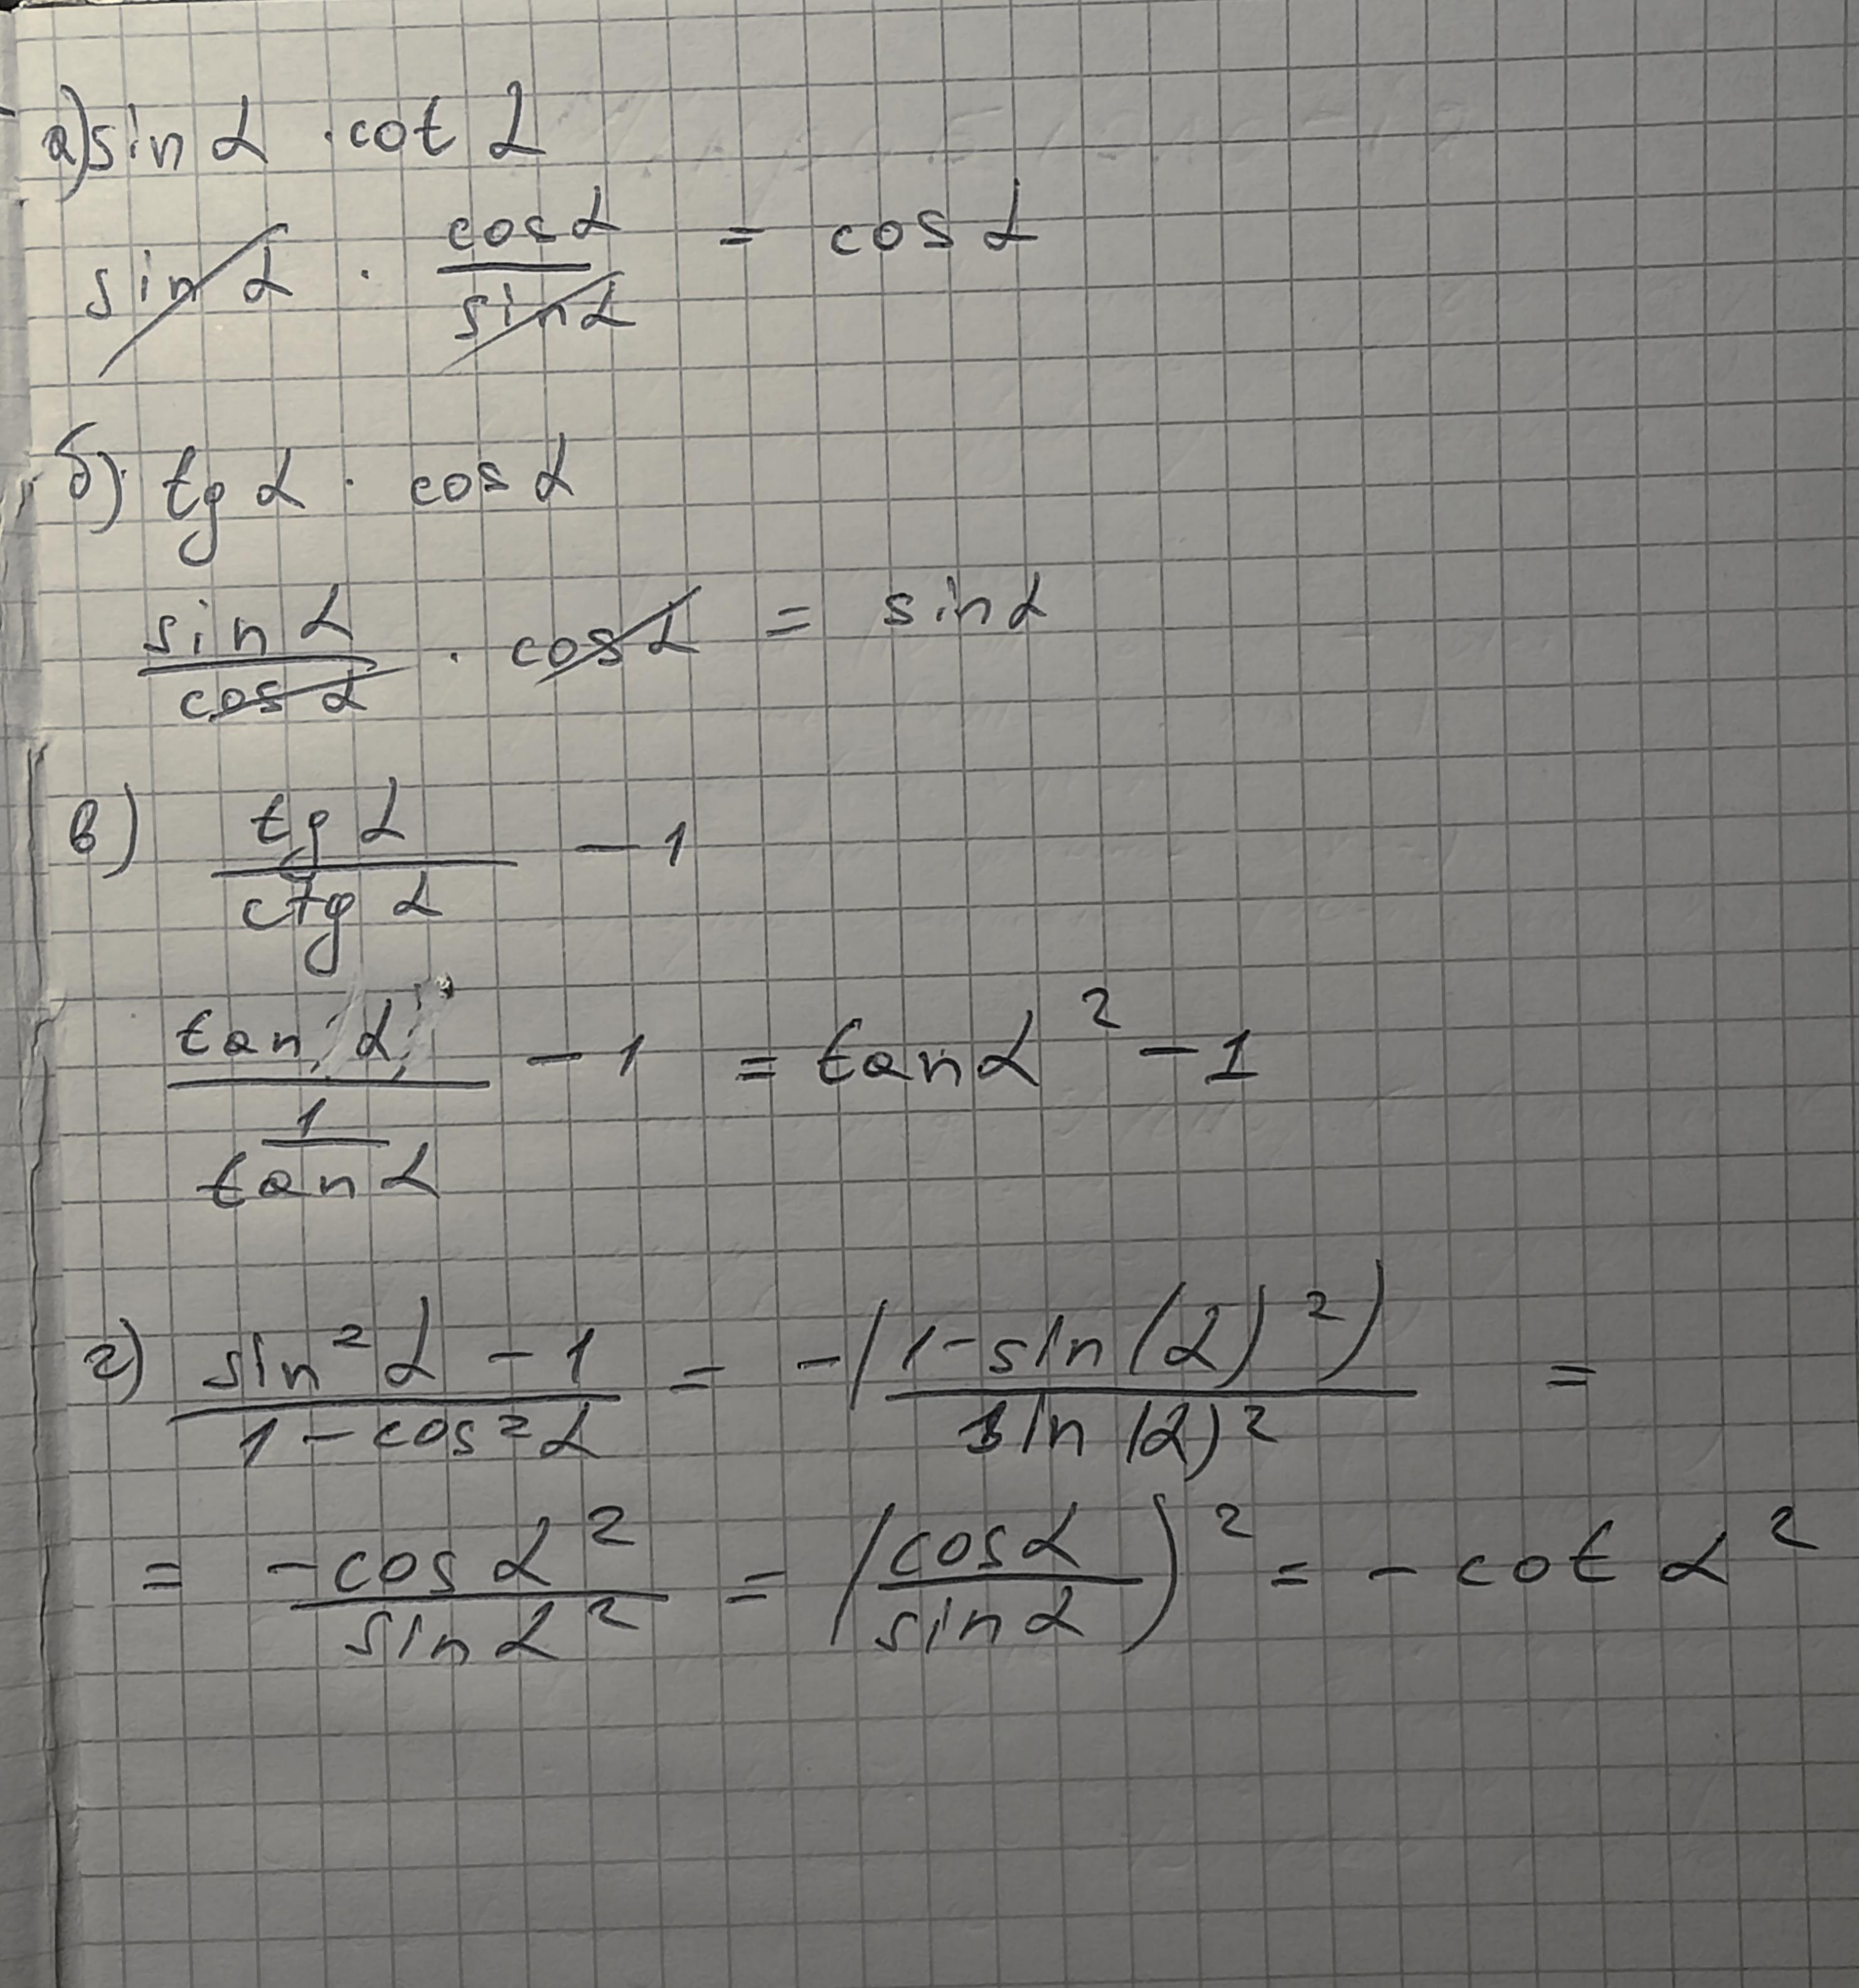 а) sin α · cot α
sin α · cos α / sin α = cos α
б) tg α · cos α
sin α / cos α · cos α = sin α
в) tg α / ctg α − 1
tan α / (1 / tan α) − 1 = tan α² − 1
г) sin² α − 1 / 1 − cos² α = −(1 − sin(α)²) / sin(α)² =
= −cos α² / sin α² = (cos α / sin α)² = − cot α²